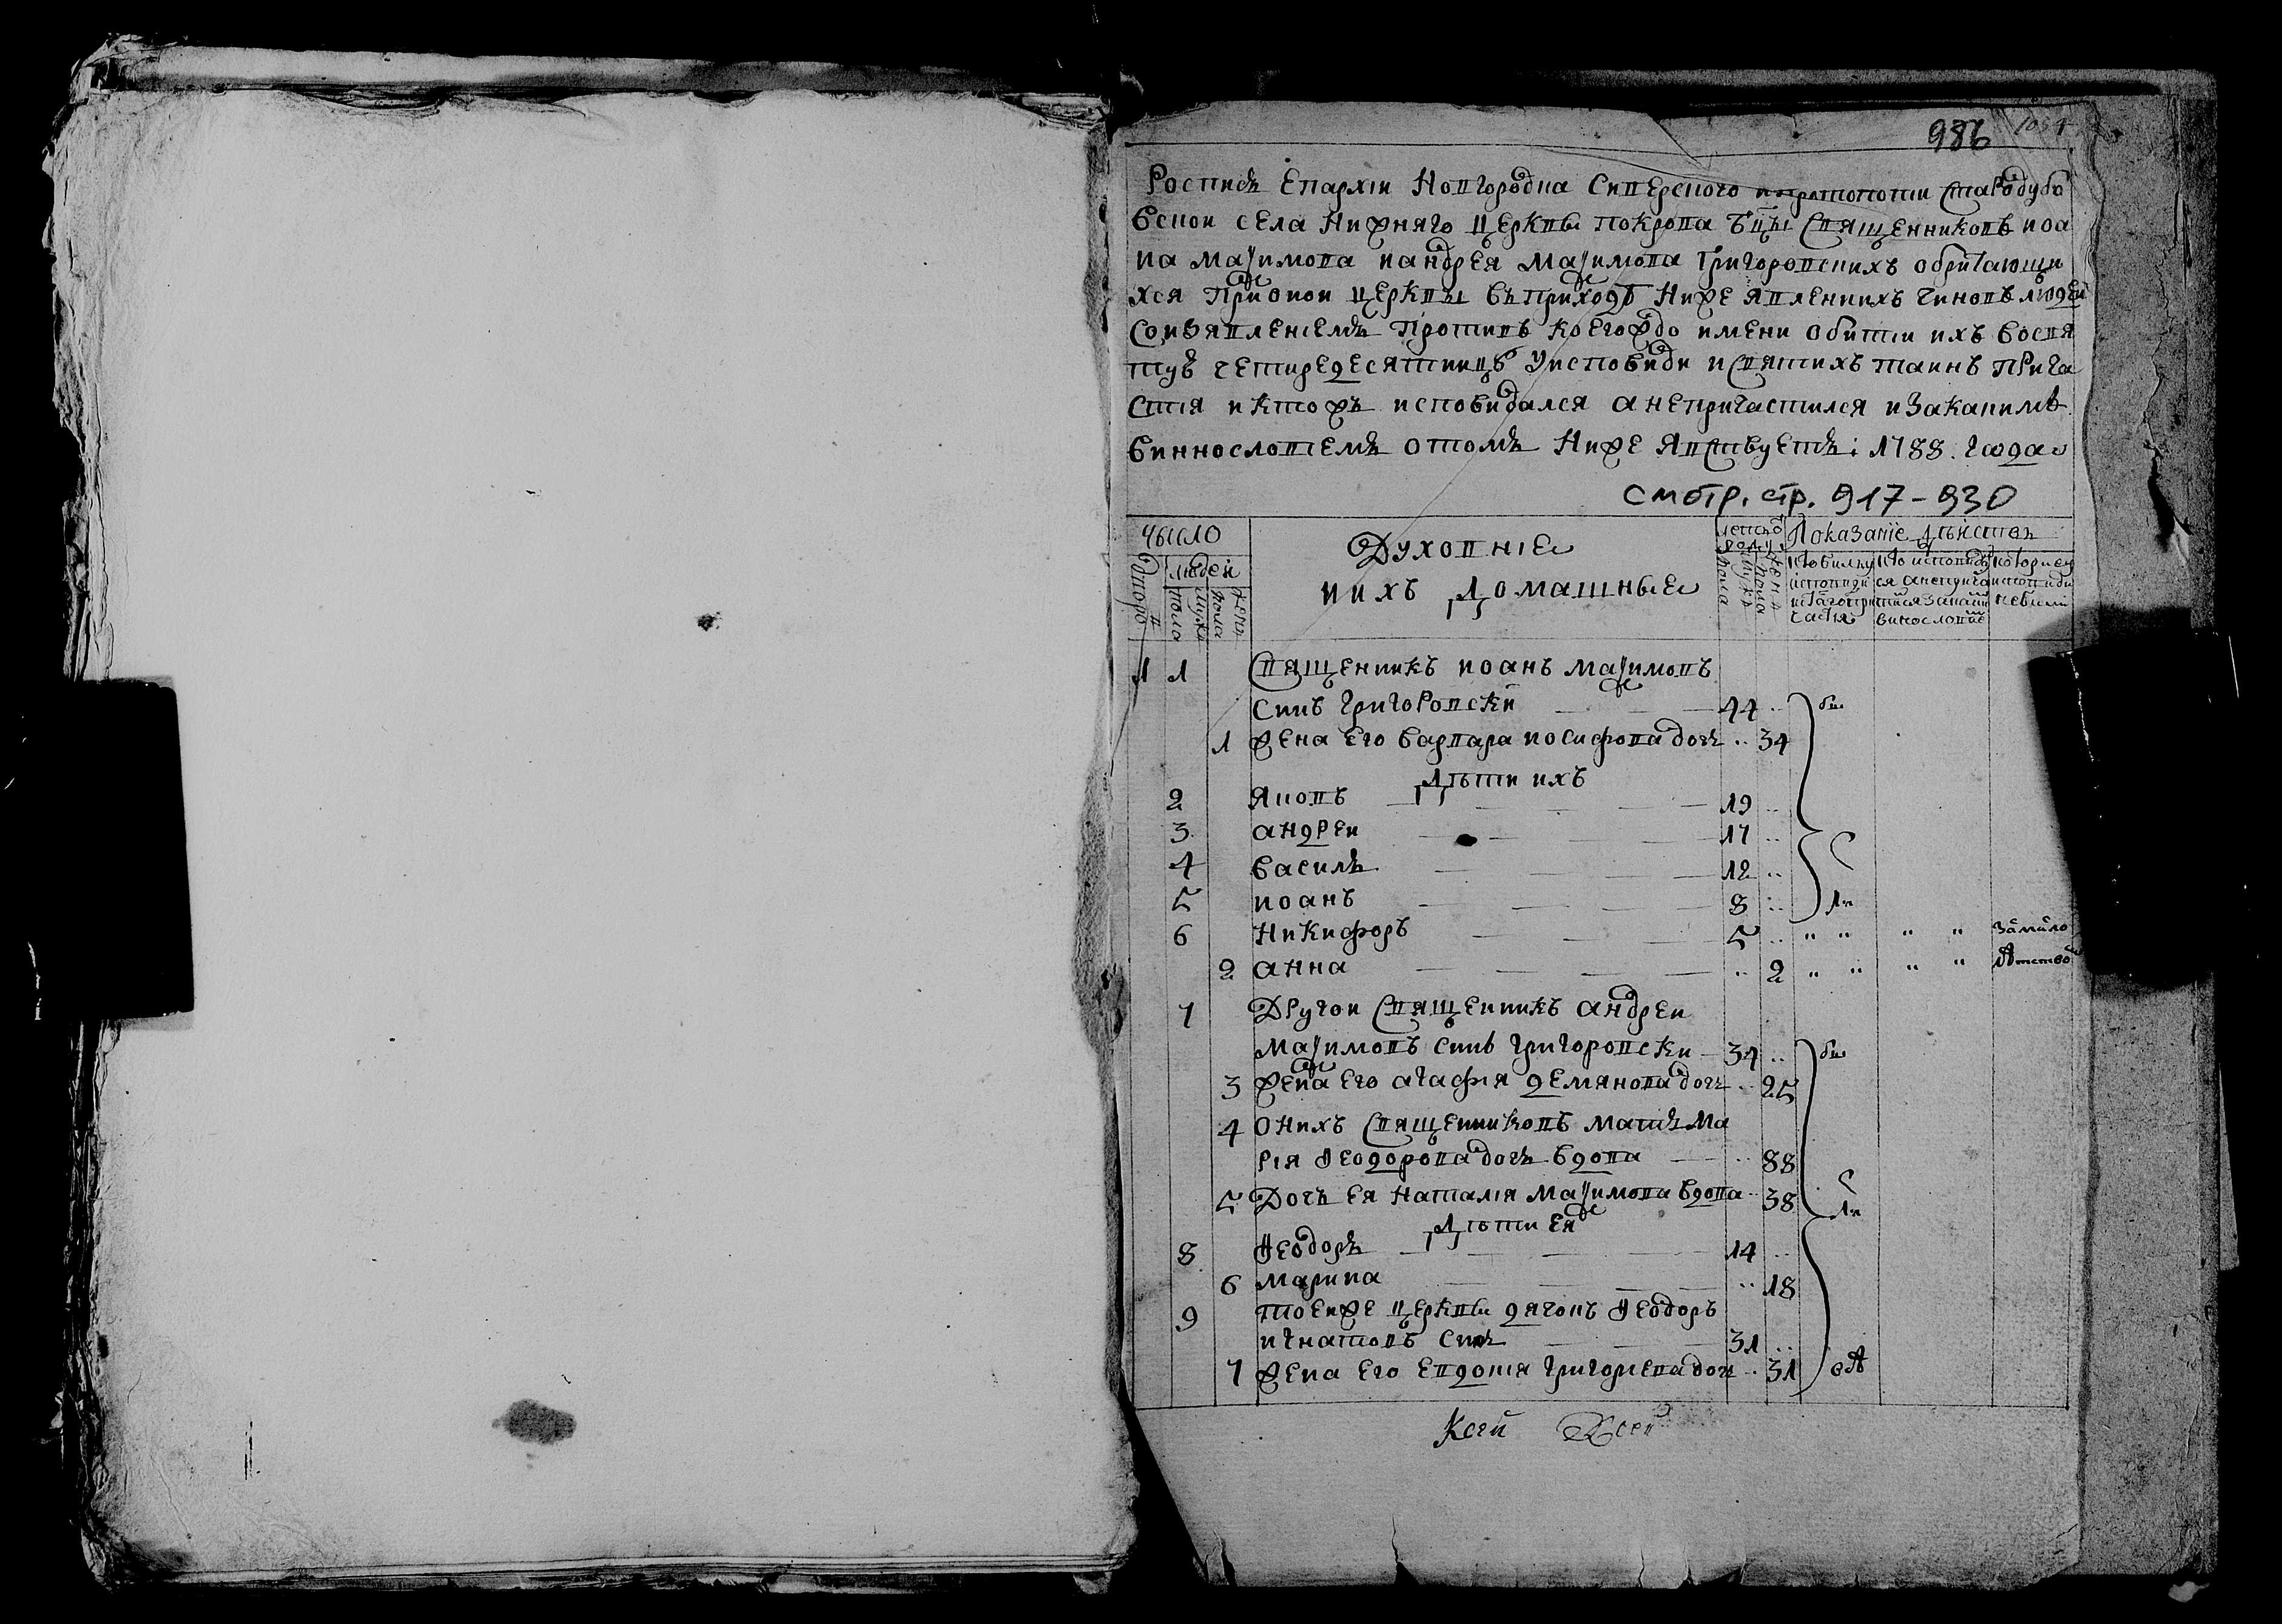 986 1034
Роспись Епархіи Новгородка Сиверского и протопопіи Стародубо
вской села Нижняго церкви Покрова Бцы Священниковъ Иоа
на Маѯимова и Андрея Маѯимова Григоровскихъ обрѣтающи
хся при оной церкви въ приходѣ ниже явленнихъ чиновъ людей
со изъявленіемъ противъ коегождо имени о битіи ихъ во свя
тую четиредесятницу у исповѣди и Святихъ таинъ прича
стія и ктожъ исповѣдался а не причастился и за какимъ
виннословіемъ о томъ ниже явствуетъ: 1788. года
смотр. стр. 917-930
Число
людей
дворовъ
мужска пола
женска пола
Духовніе
и ихъ домашные
лета от роду
мужска пола
женска пола
Показаніе дѣйствъ
кто били у исповѣди и с. причастія
кто исповѣдался а не причастился и за каким винословіе
которіе у исповѣди не били
1 1 Священникъ Иоанъ Маѯимовъ
синъ Григоровскій 44 би
1 Жена его Варвара Иосифова дочь 34
Дѣти ихъ
2 Яковъ 19
3 Андрей 17
4 Василь 12
5 Иоанъ 8 ли
6 Никифоръ 5 за мало
2 Анна 2 лѣтством
7 Другой Священникъ Андрей
Маѯимовъ синъ Григоровскій 34 би
3 Жена его Агафія Демянова дочь 25
4 Онихъ Священниковъ мать Ма
рія Ѳеодорова дочь вдова 88
5 Дочъ ея Наталія Маѯимова вдова 38 ли
Дѣти ея
8 Ѳеодоръ 14
6 Марина 18
9 Тоейже церкви дячокъ Ѳеодоръ
Игнатовъ синъ 31
7 Жена его Евдокія Григоріева дочь 31